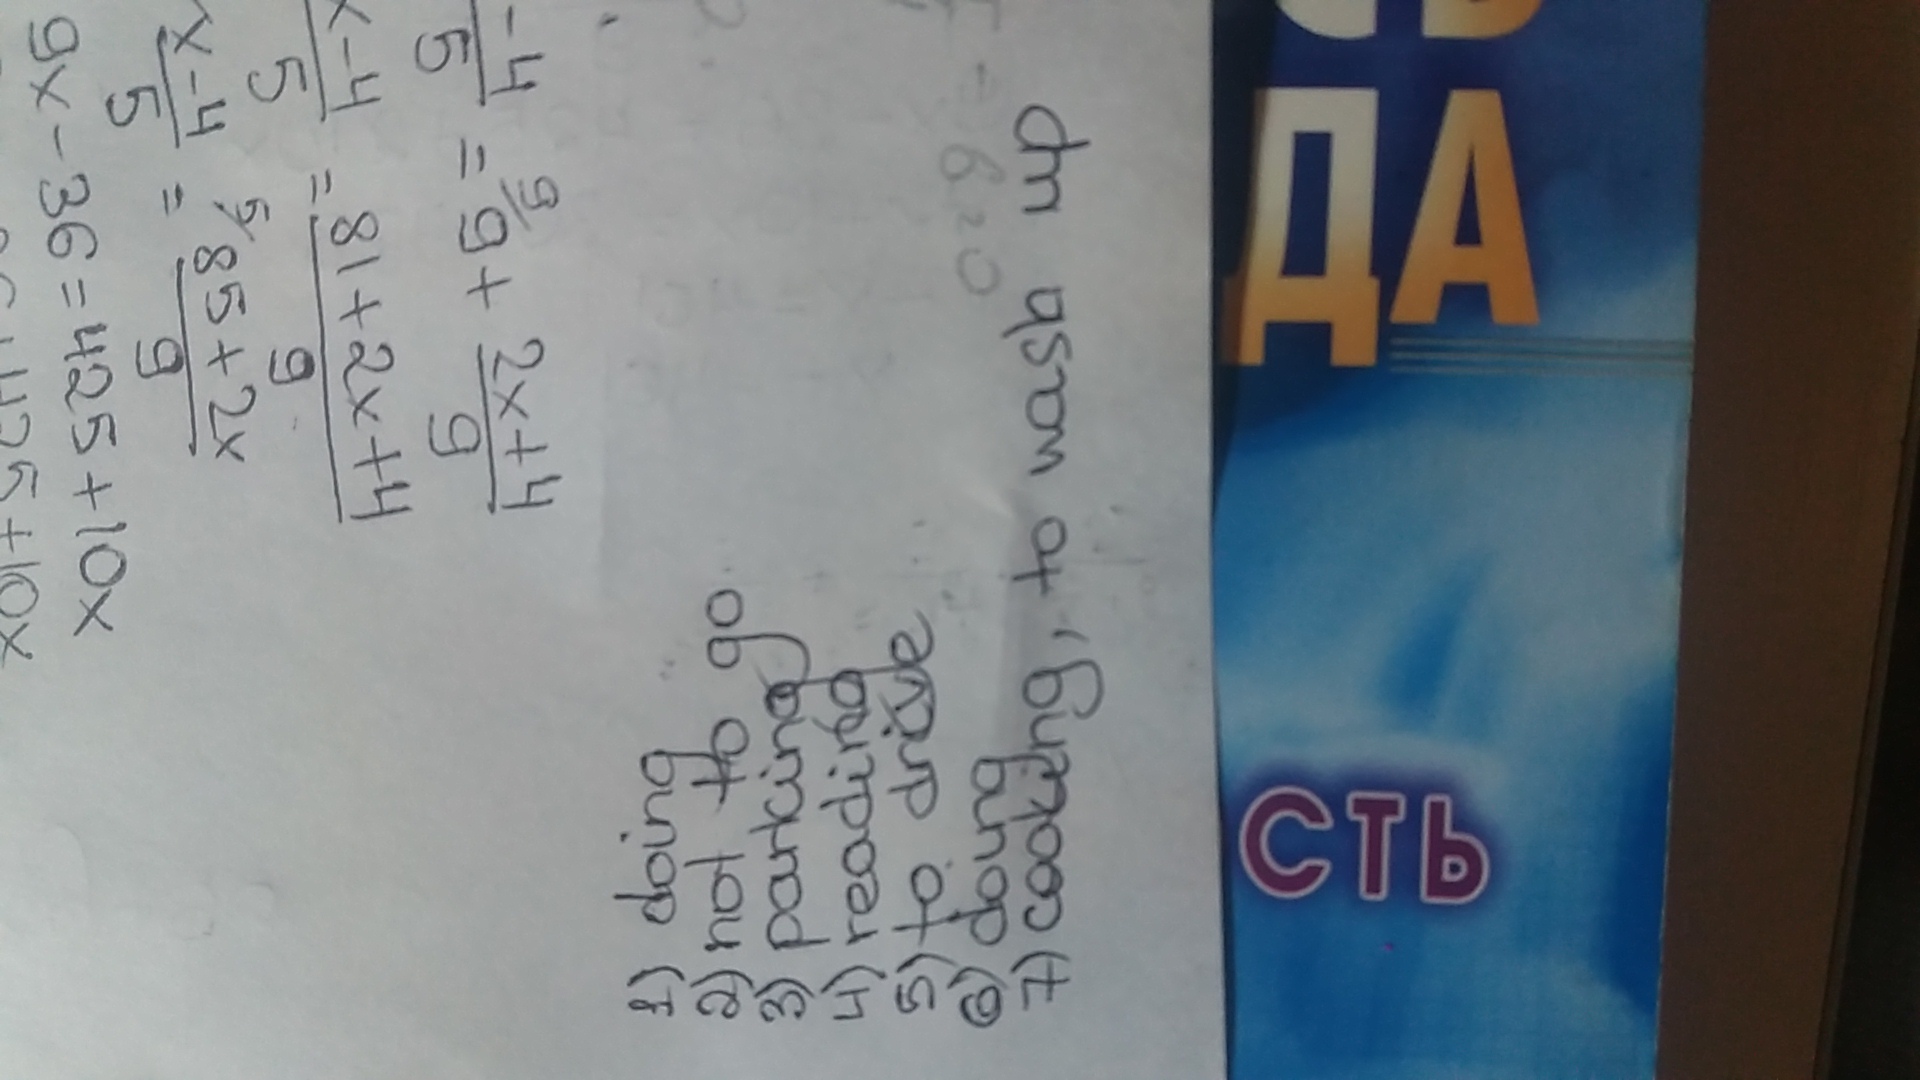 1) doing
2) not to go
3) parking
4) reading
5) to drive
6) doing
7) cooking, to wash up
-4/5 = 9 + 2x+4/9
x-4/5 = 81+2x+4/9
x-4/5 = 85+2x/9
9x-36=425+10x
ДА
СТЬ